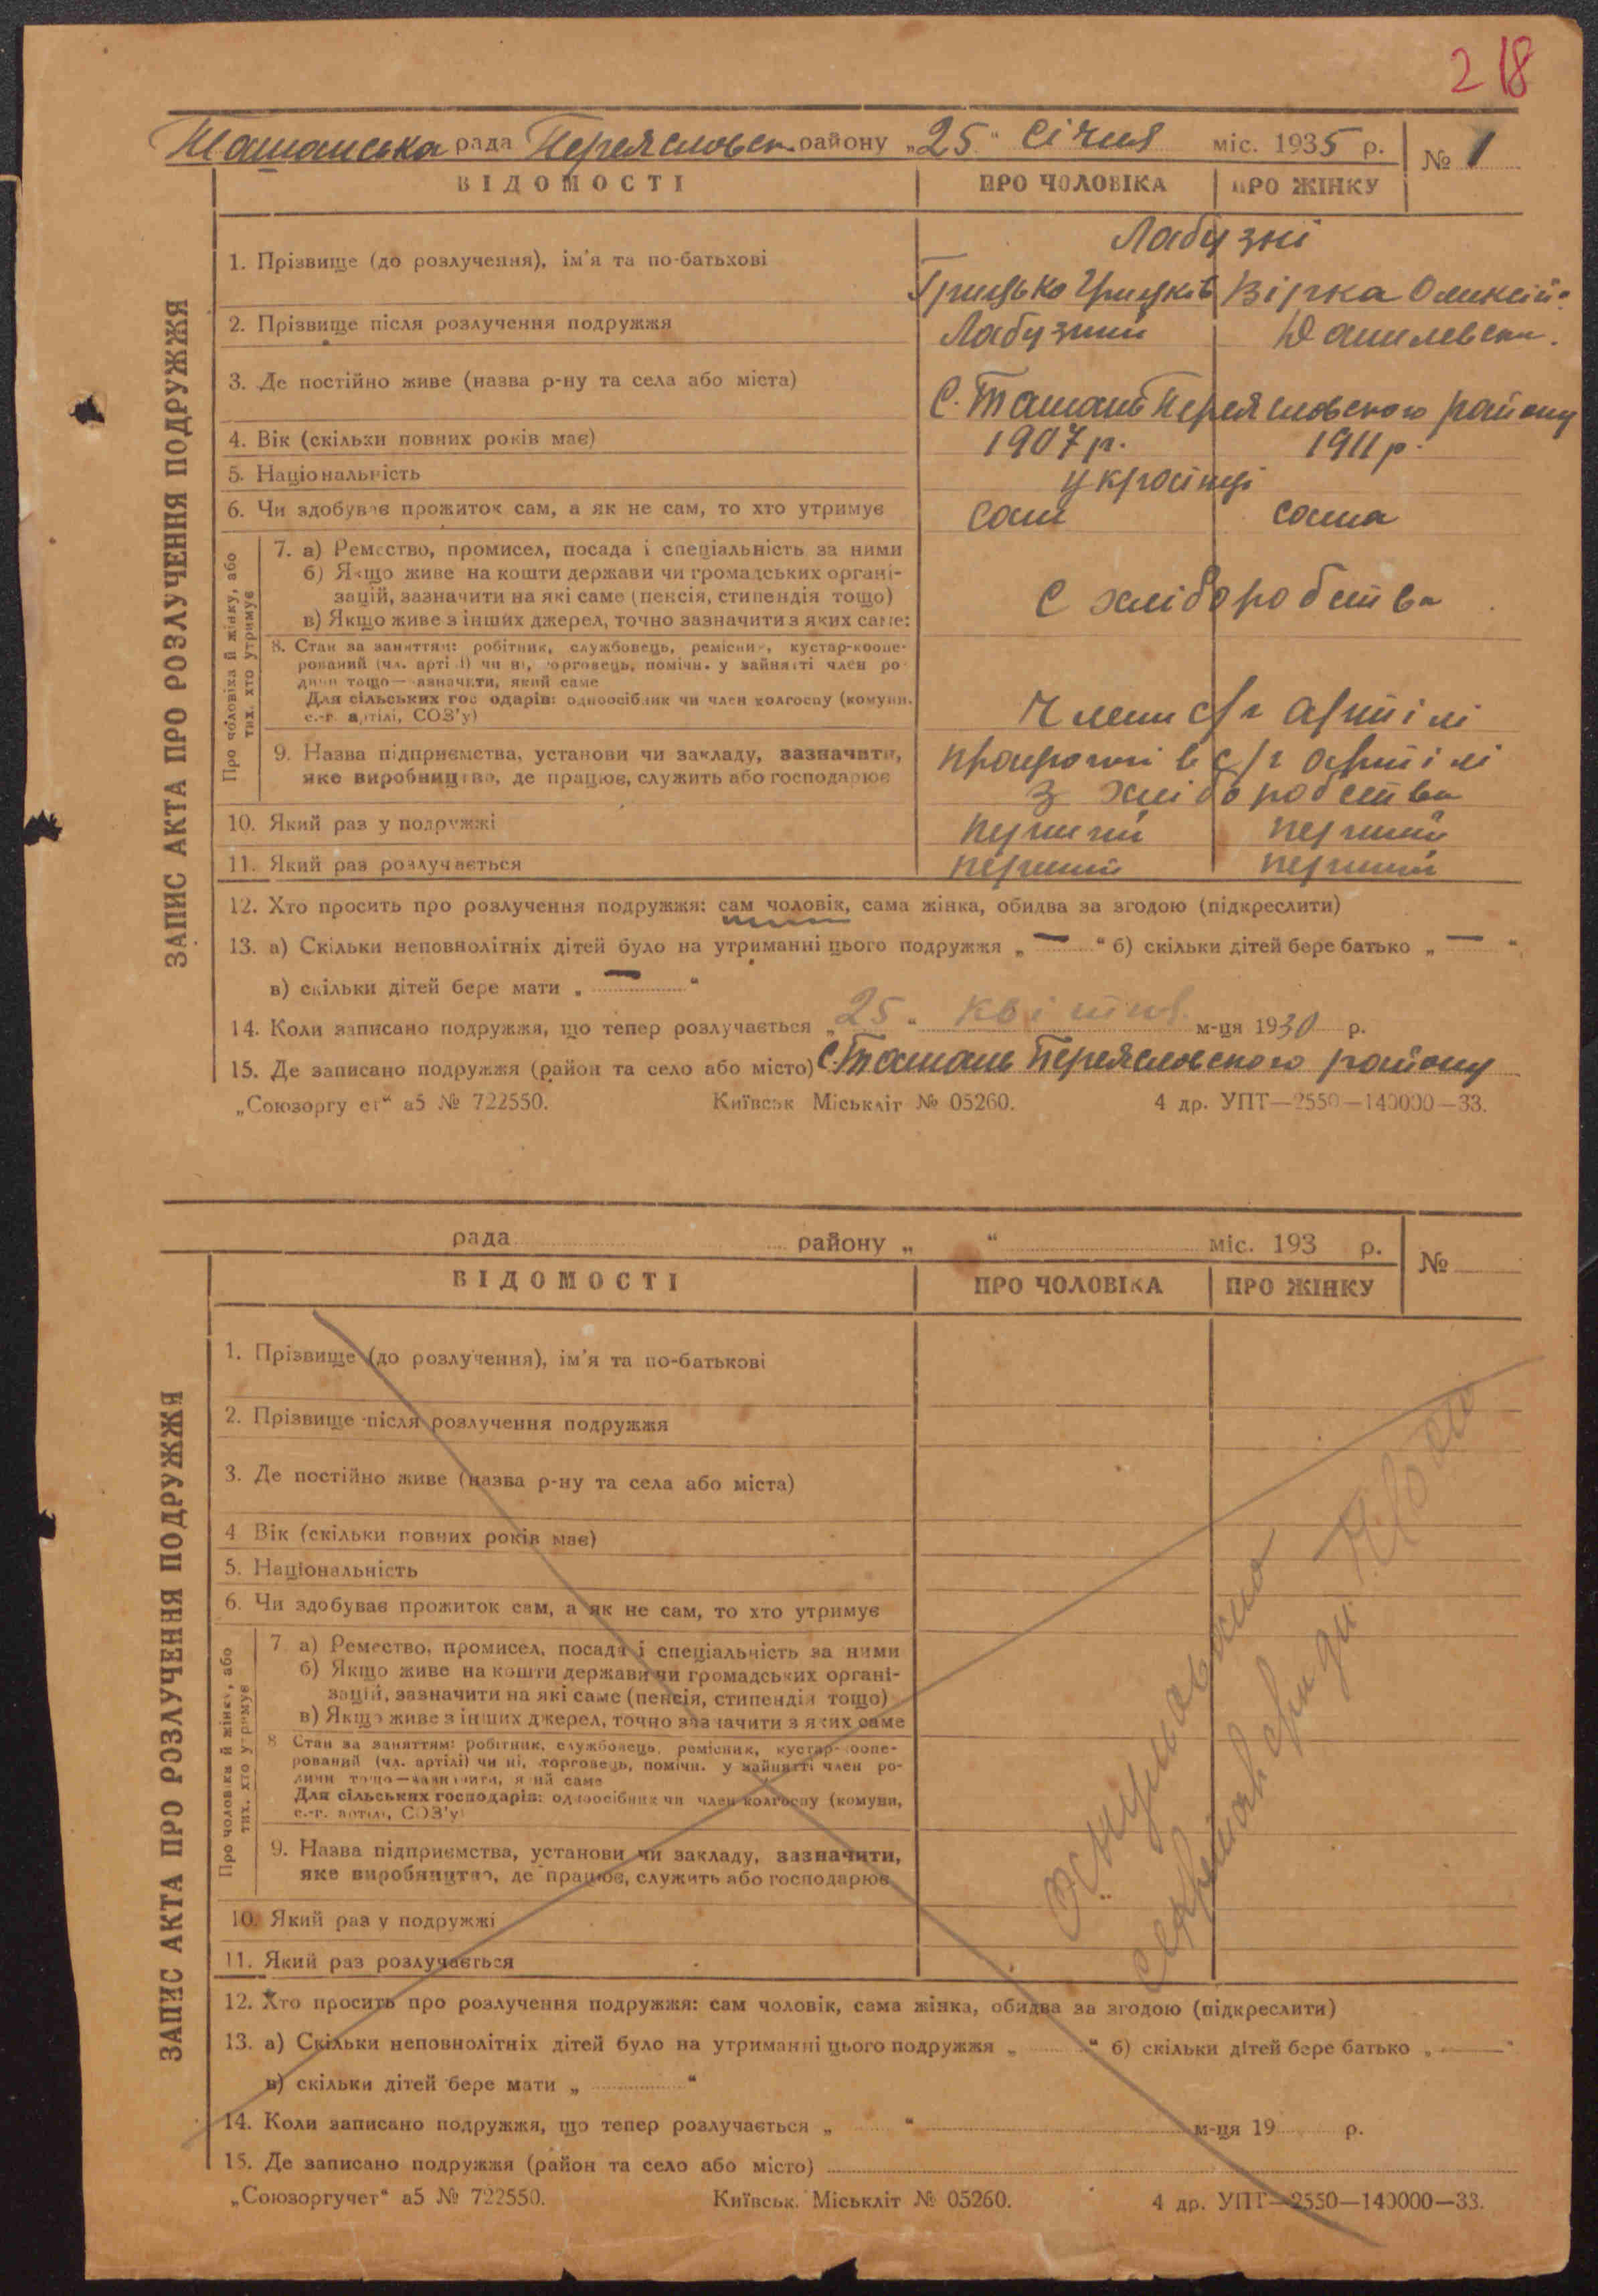 218
Ташанська рада Переясловск. району „25“ Січня міс. 1935 р. № 1
ВІДОМОСТІ ПРО ЧОЛОВІКА ПРО ЖІНКУ
ЗАПИС АКТА ПРО РОЗЛУЧЕННЯ ПОДРУЖЖЯ
Лабузні
1. Прізвище (до розлучення), ім'я та по-батькові
Грицько Грицків Вірка Олексій.
2. Прізвище після розлучення подружжя Лабузний Данилевськ.
3. Де постійно живе (назва р-ну та села або міста) С. Ташань Переясловского району
4. Вік (скільки повних років має) 1907 р. 1911 р.
5. Національність українці
6. Чи здобуває прожиток сам, а як не сам, то хто утримує сам сама
Про чоловіка й жінку, або
тих, хто утримує
7. а) Ремество, промисел, посада і спеціальність за ними
б) Якщо живе на кошти держави чи громадських органі-
зацій, зазначити на які саме (пенсія, стипендія тощо) С хліборобства
в) Якщо живе з інших джерел, точно зазначити з яких саме:
8. Стан за заняттям: робітник, службовець, ремісник, кустар-коопе-
рований (чл. артілі) чи ні, торговець, помічн. у зайнятті член ро-
дини тощо—зазначити, який саме
Для сільських господарів: одноосібник чи член колгоспу (комуни,
с.-г. артілі, СОЗ'у) Члени с/г артілі
9. Назва підприємства, установи чи закладу, зазначити, працюючі в с/г артілі
яке виробництво, де працює, служить або господарює з хліборобства
10. Який раз у подружжі перший перший
11. Який раз розлучається перший перший
12. Хто просить про розлучення подружжя: сам чоловік, сама жінка, обидва за згодою (підкреслити)
13. а) Скільки неповнолітніх дітей було на утриманні цього подружжя „ — “ б) скільки дітей бере батько „ — “
в) скільки дітей бере мати „ — “
14. Коли записано подружжя, що тепер розлучається „25“ квітня м-ця 1930 р.
15. Де записано подружжя (район та село або місто) С. Ташань Переясловского району
„Союзоргучет“ а5 № 722550. Київськ Міськліт № 05260. 4 др. УПТ—2550—140000—33.
рада району „ “ міс. 193 р. №
ВІДОМОСТІ ПРО ЧОЛОВІКА ПРО ЖІНКУ
ЗАПИС АКТА ПРО РОЗЛУЧЕННЯ ПОДРУЖЖЯ
1. Прізвище (до розлучення), ім'я та по-батькові
2. Прізвище після розлучення подружжя
3. Де постійно живе (назва р-ну та села або міста)
4 Вік (скільки повних років має)
5. Національність
6. Чи здобуває прожиток сам, а як не сам, то хто утримує
Про чоловіка й жінку, або
тих, хто утримує
7 а) Ремество, промисел, посада і спеціальність за ними
б) Якщо живе на кошти держави чи громадських органі-
зацій, зазначити на які саме (пенсія, стипендія тощо)
в) Якщо живе з інших джерел, точно зазначити з яких саме
8 Стан за заняттям: робітник, службовець, ремісник, кустар-коопе-
рований (чл. артілі) чи ні, торговець, помічн. у зайнятті член ро-
дини тощо—зазначити, який саме
Для сільських господарів: одноосібник чи член колгоспу (комуни,
с.-г. артілі, СОЗ'у)
9. Назва підприємства, установи чи закладу, зазначити,
яке виробництво, де працює, служить або господарює
10. Який раз у подружжі
11. Який раз розлучається
12. Хто просить про розлучення подружжя: сам чоловік, сама жінка, обидва за згодою (підкреслити)
13. а) Скільки неповнолітніх дітей було на утриманні цього подружжя „ “ б) скільки дітей бере батько „ “
в) скільки дітей бере мати „ “
14. Коли записано подружжя, що тепер розлучається „ “ м-ця 19 р.
15. Де записано подружжя (район та село або місто)
„Союзоргучет“ а5 № 722550. Київськ. Міськліт № 05260. 4 др. УПТ—2550—140000—33.